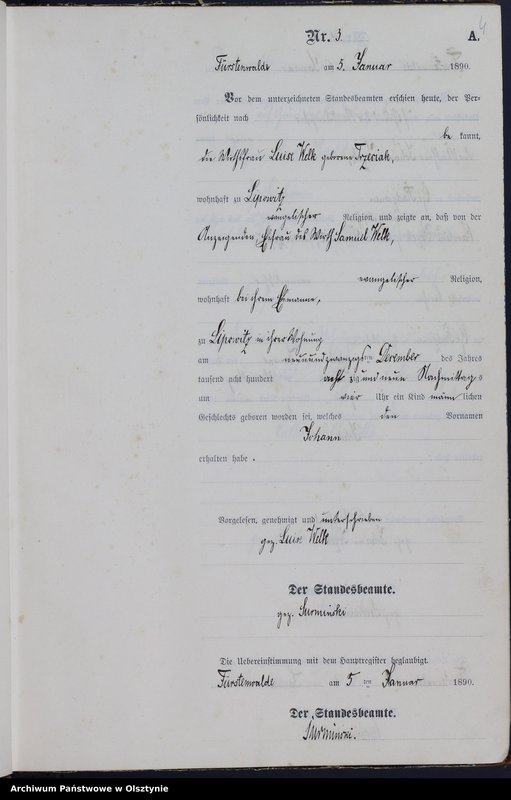 4
Nr. 3. A.
Fürstenwalde am 5. Januar 1890.
Vor dem unterzeichneten Standesbeamten erschien heute, der Per-
sönlichkeit nach
be kannt,
die Wirthsfrau Luise Welk geborene Trzeciak,
wohnhaft zu Lipowitz
evangelischer Religion, und zeigte an, daß von der
Anzeigenden, Ehefrau des Wirth Samuel Welk,
evangelischer Religion,
wohnhaft bei ihrem Ehemanne,
zu Lipowitz in ihrer Wohnung
am neunundzwanzigsten Dezember des Jahres
tausend acht hundert acht zig und neun Nachmittags
um vier Uhr ein Kind männ lichen
Geschlechts geboren worden sei, welches den Vornamen
Johann
erhalten habe.
Vorgelesen, genehmigt und unterschrieben
gez. Luise Welk
Der Standesbeamte.
gez. Surminski
Die Uebereinstimmung mit dem Hauptregister beglaubigt.
Fürstenwalde am 5 ten Januar 1890.
Der Standesbeamte.
Surminski.
Archiwum Państwowe w Olsztynie